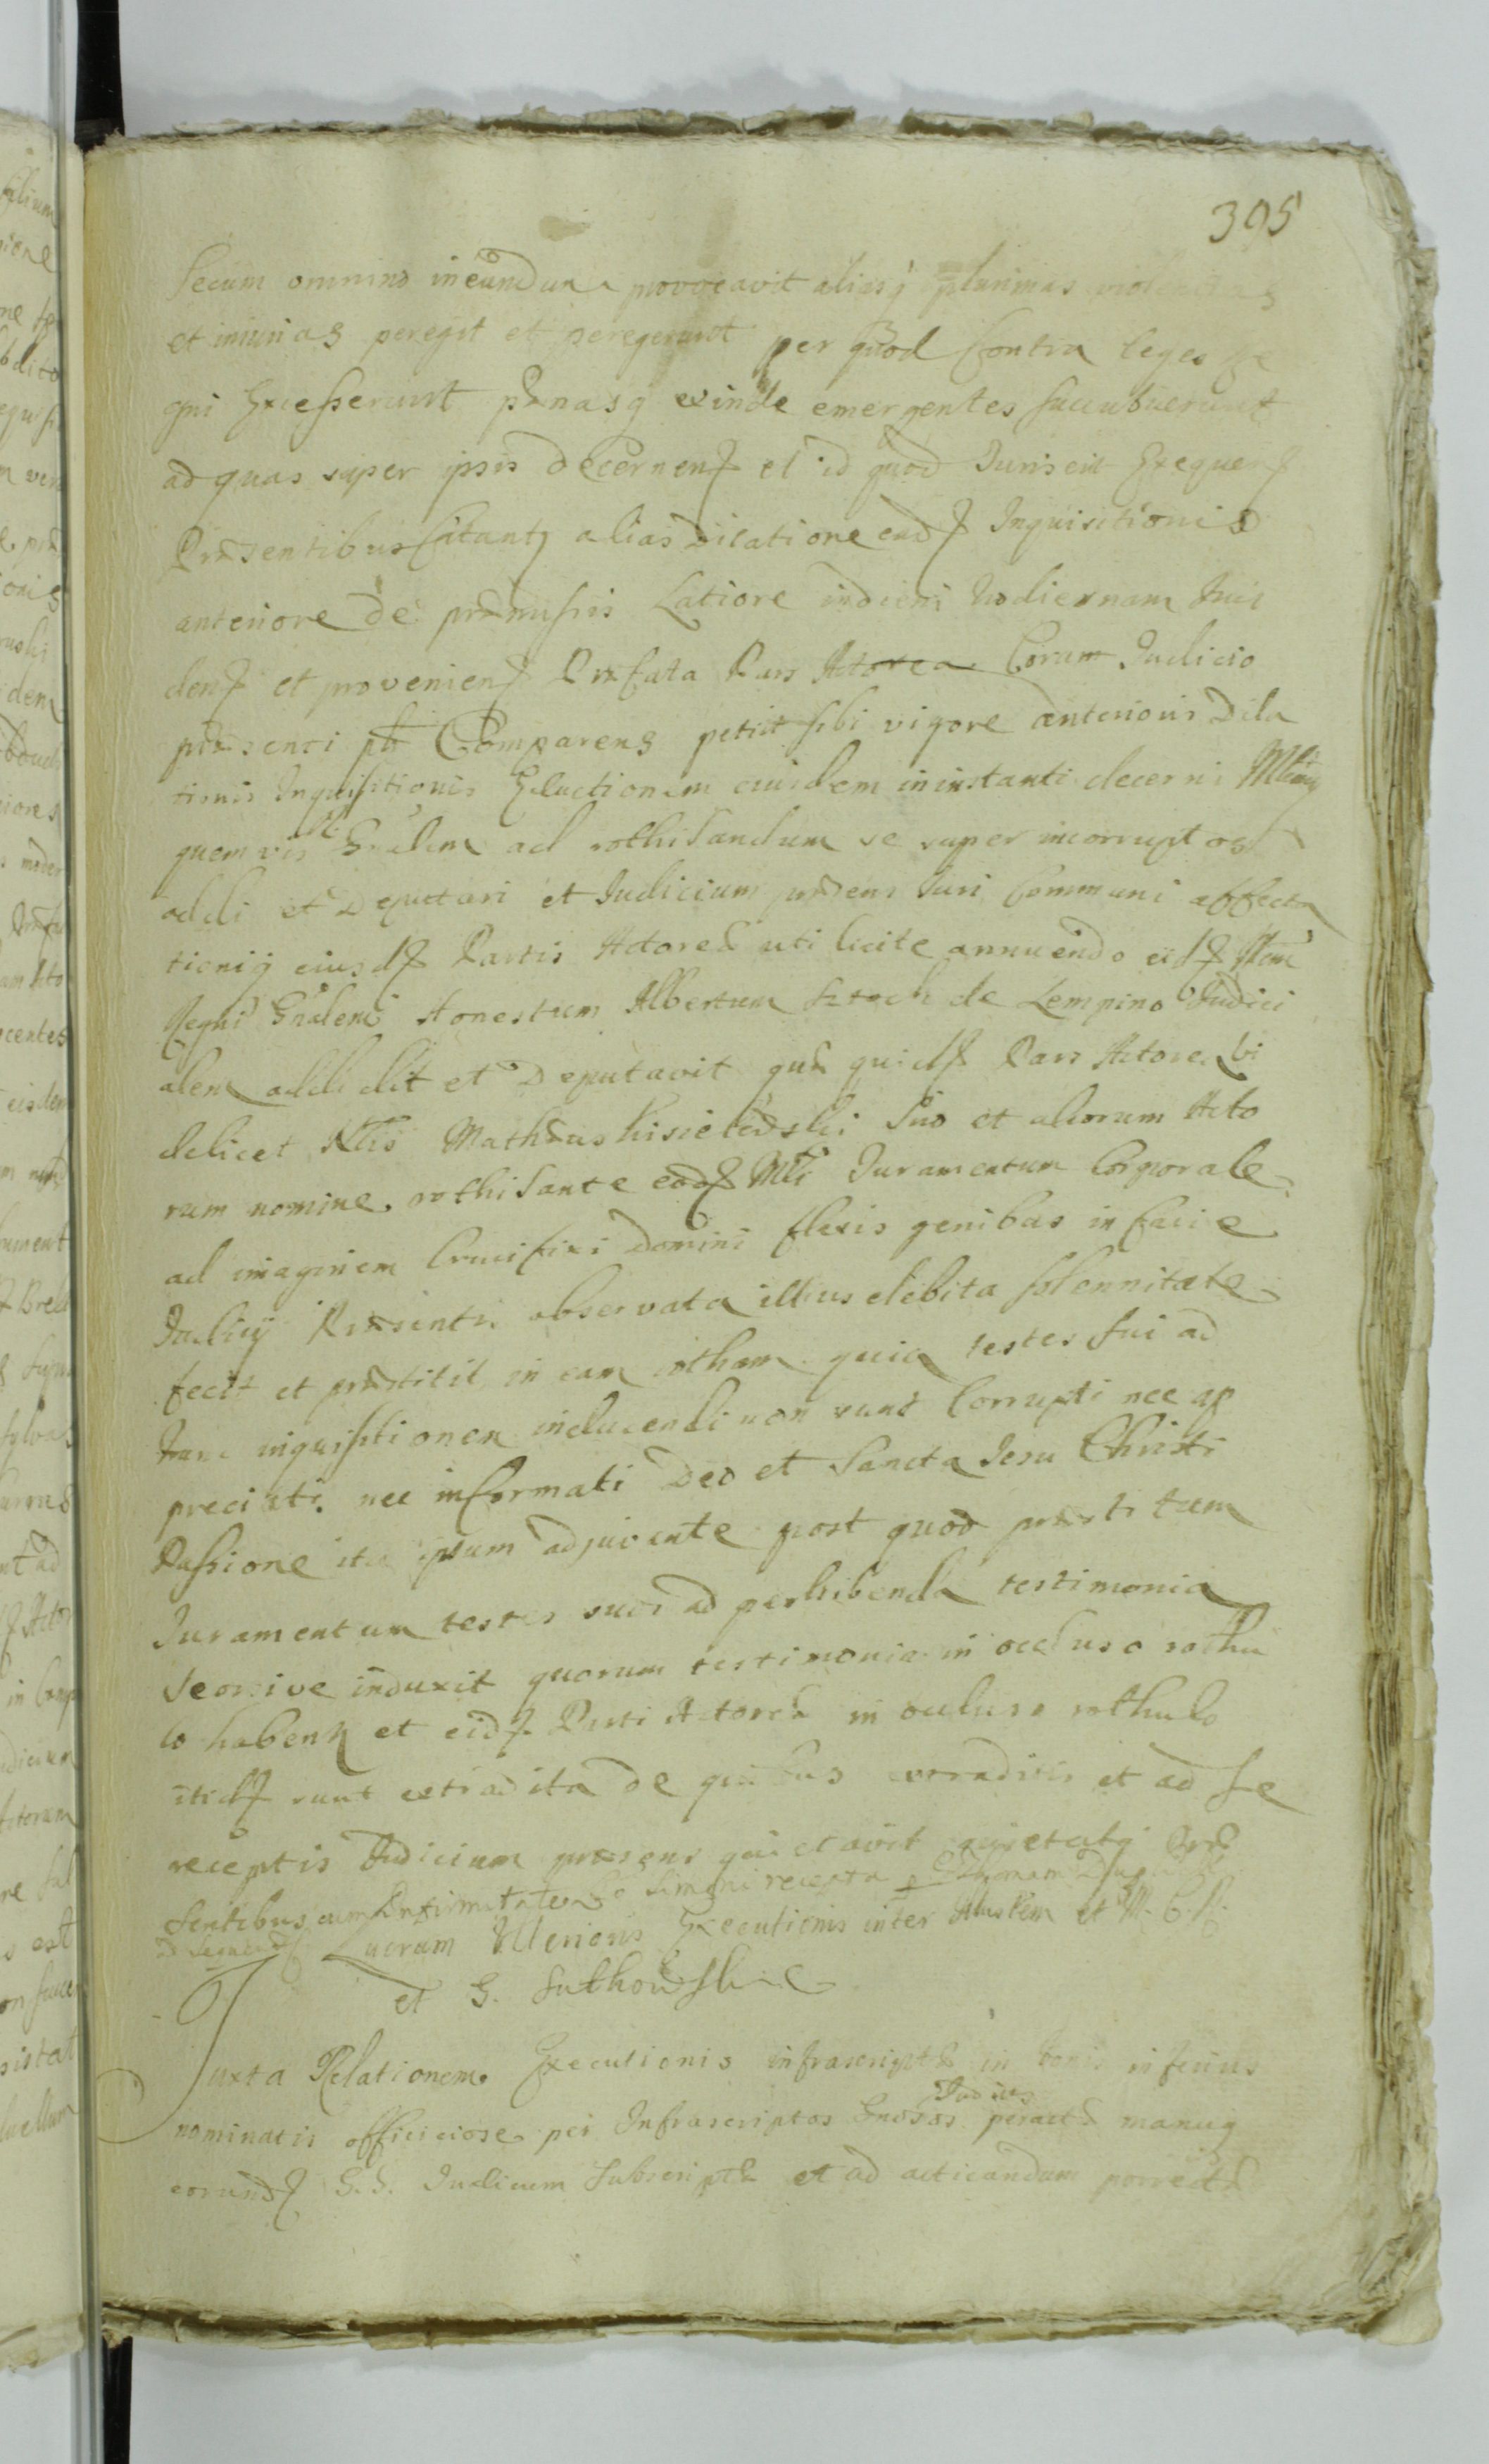 395
secum omnino ineundum provocavit aliasq plurimas violentias
et iniurias peregit et peregerunt per quod Contra leges Re
gni Excesserunt pænasq exinde emergentes succubuerunt
ad quas super ipsis decernen et id quod Iuris erit Exequen
Præsentibus Citantq alias Dilatione eade Inquisitionis
anteriore de præmissis Latiore indicens hodiernam Inci
den et provenien Præfata Pars Actorea Coram Iudicio
præsenti ptr Comparens petiit sibi vigore anterioris Dila
tionis Inquisitionis Eductionem eiusdem in instanti decerni Mlemq
quemvis Gnalem ad rothisandum se super incorruptos
addi et Deputari et Iudicium præsens Iuri Communi affecta
tioniq eiusd Partis Actoreæ uti licite annuendo eid Mlem
Regni Gnalem Honestum Albertum Stoch de Lempino Iudici
alem addidit et Deputavit quæ quid Pars Actorea vi
delicet Nlis Mathæus Kisielewski Suo et aliorum Acto
rum nomine rothisante eod Mli Iuramentum Corporale
ad imaginem Crucifixi Domini flexis genibus in facie
Iudicij Præsentis observata illius debita solennitate
fecit et præstitit in eam rotham quia testes sui ad
hanc inquisitionem inducendi non sunt Corrupti nec ap
preciati nec informati Deo et Sancta Iesu Christi
Passione ita ipsum adjuvante post quod præstitum
Iuramentum testes suos ad perhibenda testimonia
seorsive induxit quorum testimonia in occluso rothu
lo haben et eid Parti Actoreæ in occluso rothulo
itid sunt extradita de quibus extraditis et ad se
receptis Iudicium præsens quietavit quietatq Præ
sentibus cum
Lucrum Ulterioris Executionis inter Illustrem et M. C. R.
et G. Suthowskie
Iuxta Relationem Executionis infrascriptæ in bonis inferius
nominatis officiose per Infrascriptos Gnosos Iudices peractæ manuq
eorund G.G. Iudicum Subscriptæ et ad acticandum porrectæ